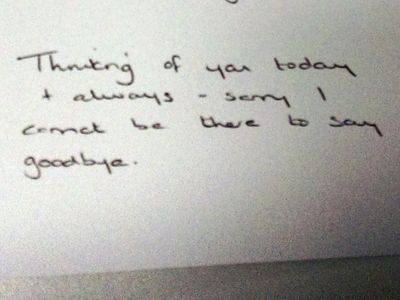 Thinking of you today
+ always - sorry I
cannot be there to say
goodbye.